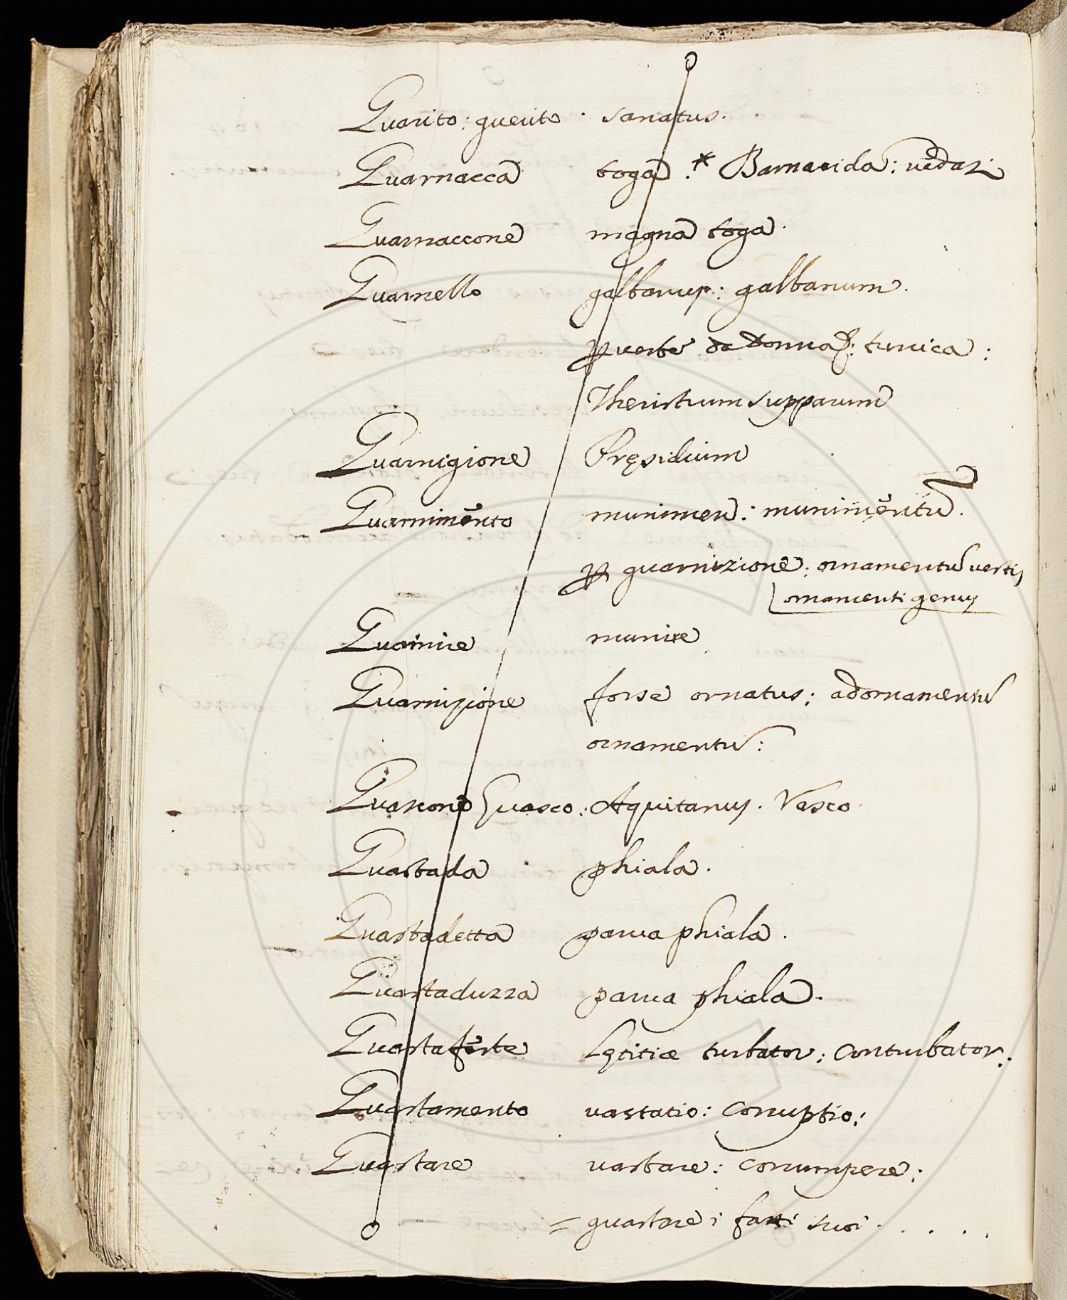 Guarito: guerito . sanatus.
Guarnacca toga .* Barnacida: vedaz:
Guarnaccone magna toga.
Guarnello galbanus: galbanum.
p veste da donna: tunica:
Theristrum supparum
Guarnigione Pręsidium
Guarnimento munimen: munimentũ.
p guarnizione: ornamentũ vestis
ornamenti genus
Guarnire munire
Guarnizione forse ornatus; adornamentũ
ornamentũ:
Guascone Guasco: Aquitanus. Vasco.
Guastada phiala.
Guastadetta parua phiala.
Guastaduzza parua phiala.
Guastafeste Lętitiæ turbator; conturbator:
Guastamento vastatio: corruptio:
Guastare vastare: corrumpere:
= guastare i fatti suoi . . . . .